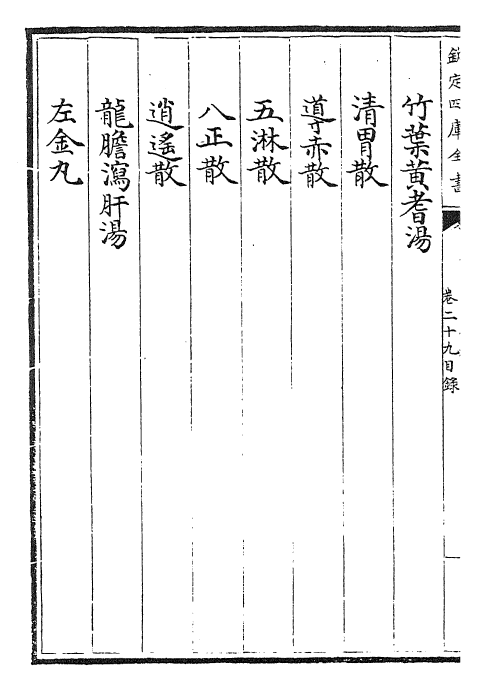 欽定四庫全書
卷二十九目錄
竹葉黃耆湯
清胃散
導赤散
五淋散
八正散
逍遙散
龍膽瀉肝湯
左金丸